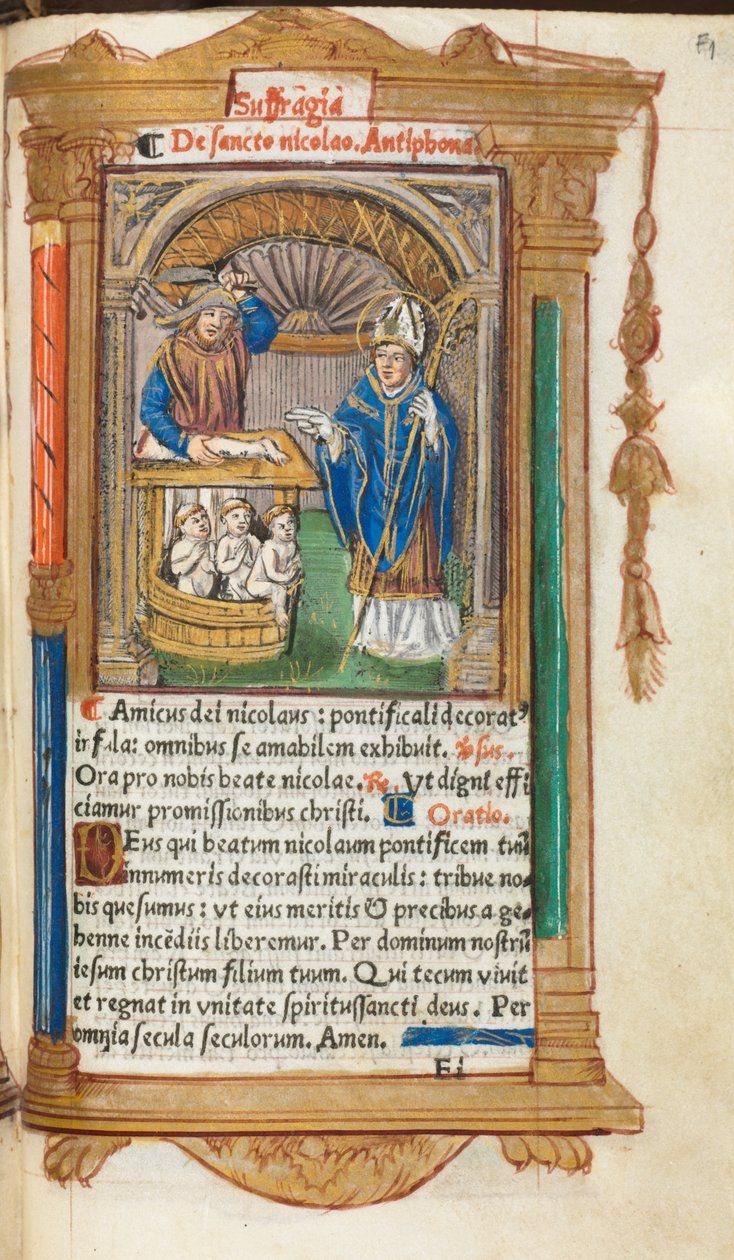 F1
Suffragia
¶ De sancto nicolao. Antiphona
¶ Amicus dei nicolaus : pontificali decoratꝰ
infula: omnibus se amabilem exhibuit. ℣sus.
Ora pro nobis beate nicolae. ℞. Vt digni effi
ciamur promissionibus christi. ¶ Oratio.
DEus qui beatum nicolaum pontificem tuū
innumeris decorasti miraculis : tribue no-
bis quesumus : vt eius meritis & precibus a ge-
henne incēdiis liberemur. Per dominum nostrū
iesum christum filium tuum. Qui tecum viuit
et regnat in vnitate spiritussancti deus. Per
omnia secula seculorum. Amen.
Fi